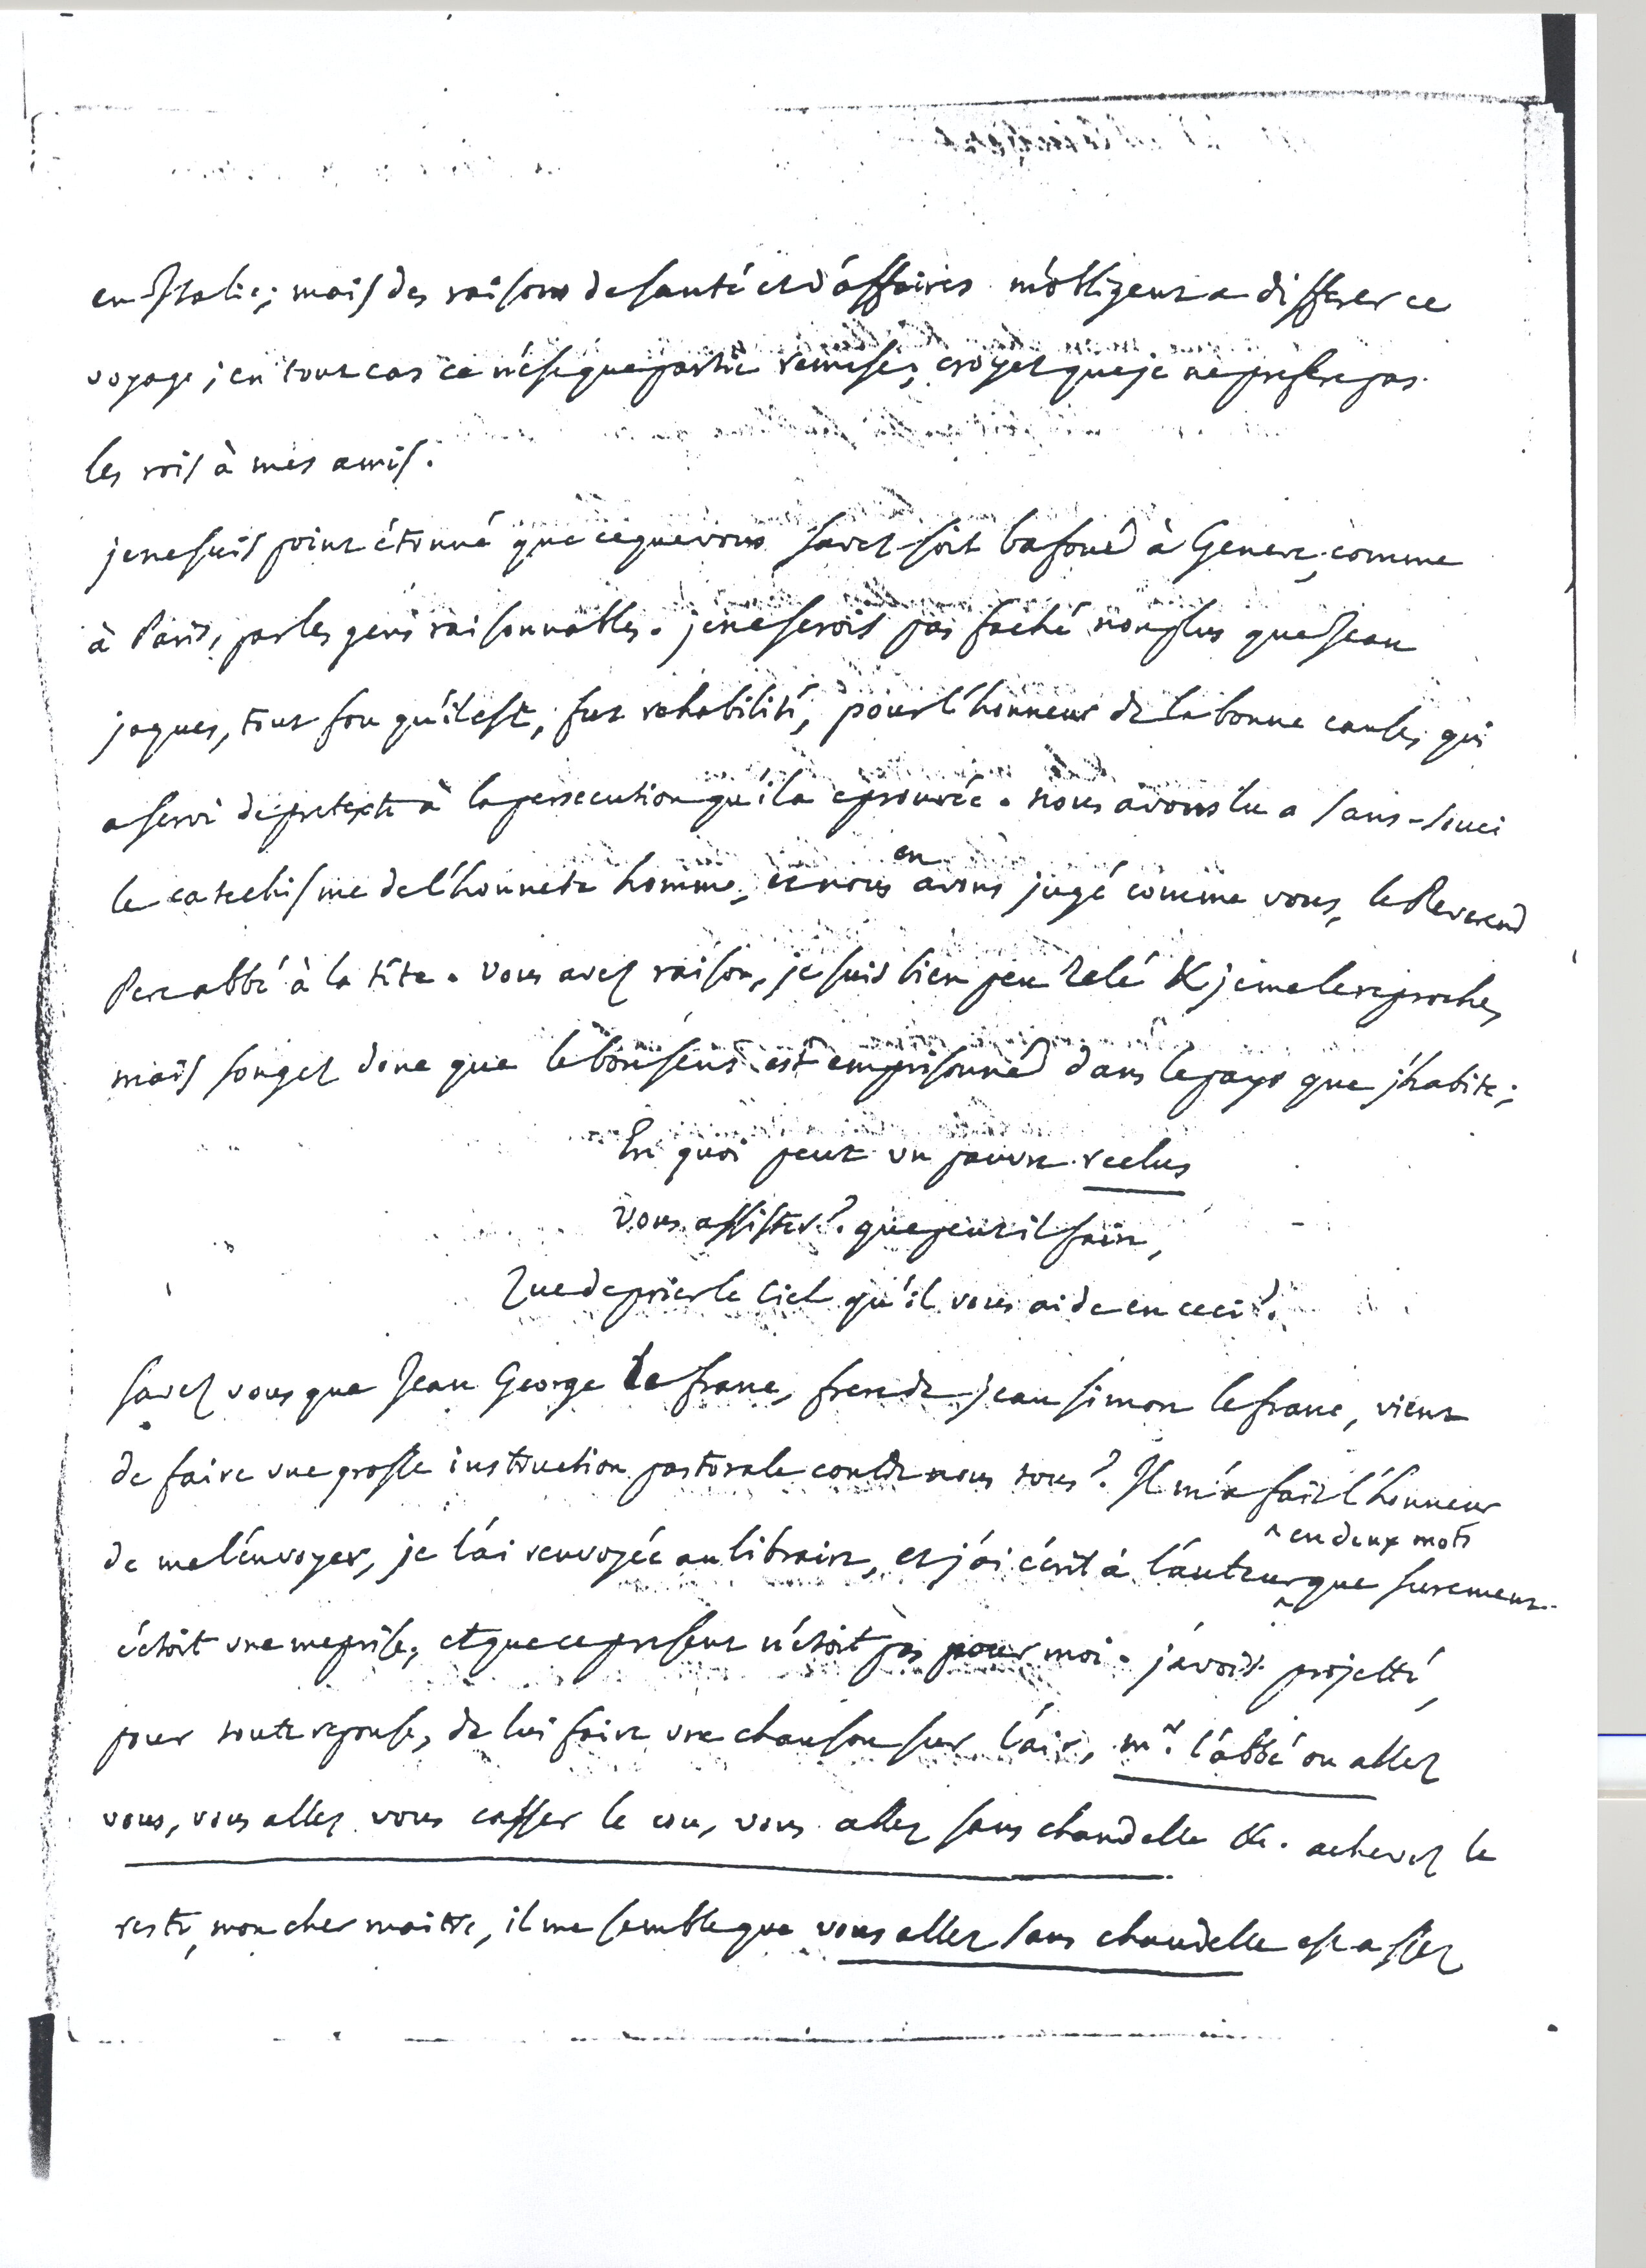 en Italie; mais des raisons de santé et d'affaires m'obligent a differer ce
voyage; en tout cas ce n'est que partie remise; croyez que je ne prefere pas
les rois à mes amis.
je ne suis point étonné que ce que vous savez soit bafoué à Geneve, comme
à Paris, par les gens raisonnables. je ne serois pas faché non plus que Jean
jaques, tout fou qu'il est, fut rehabilité, pour l'honneur de la bonne cause, qui
a servi de pretexte à la persecution qu'il a eprouvée. nous avons lu a sans-souci
le catechisme de l'honnete homme, et nous en avons jugé comme vous, le Reverend
Pere abbé à la tête. vous avez raison, je suis bien peu zelé & je me le reproche,
mais songez donc que le bon sens est emprisonné dans le pays que j'habite;
En quoi peut un pauvre reclus
Vous assister? que peut il faire,
Que de prier le Ciel qu'il vous aide en ceci?
Savez vous que Jean George le franc, frere de Jean simon le franc, vient
de faire une grosse instruction pastorale contre nous tous? Il m'a fait l'honneur
de me l'envoyer, je l'ai renvoyée au libraire, et j'ai écrit à l'auteur en deux mots que surement
c'étoit une meprise, et que ce present n'étoit pas pour moi. j'avois projetté,
pour toute reponse, de lui faire une chanson sur l'air, mr. l'abbé ou allez
vous, vous allez vous casser le cou, vous allez sans chandelle &c. achevez le
reste, mon cher maitre, il me semble que vous allez sans chandelle est assez